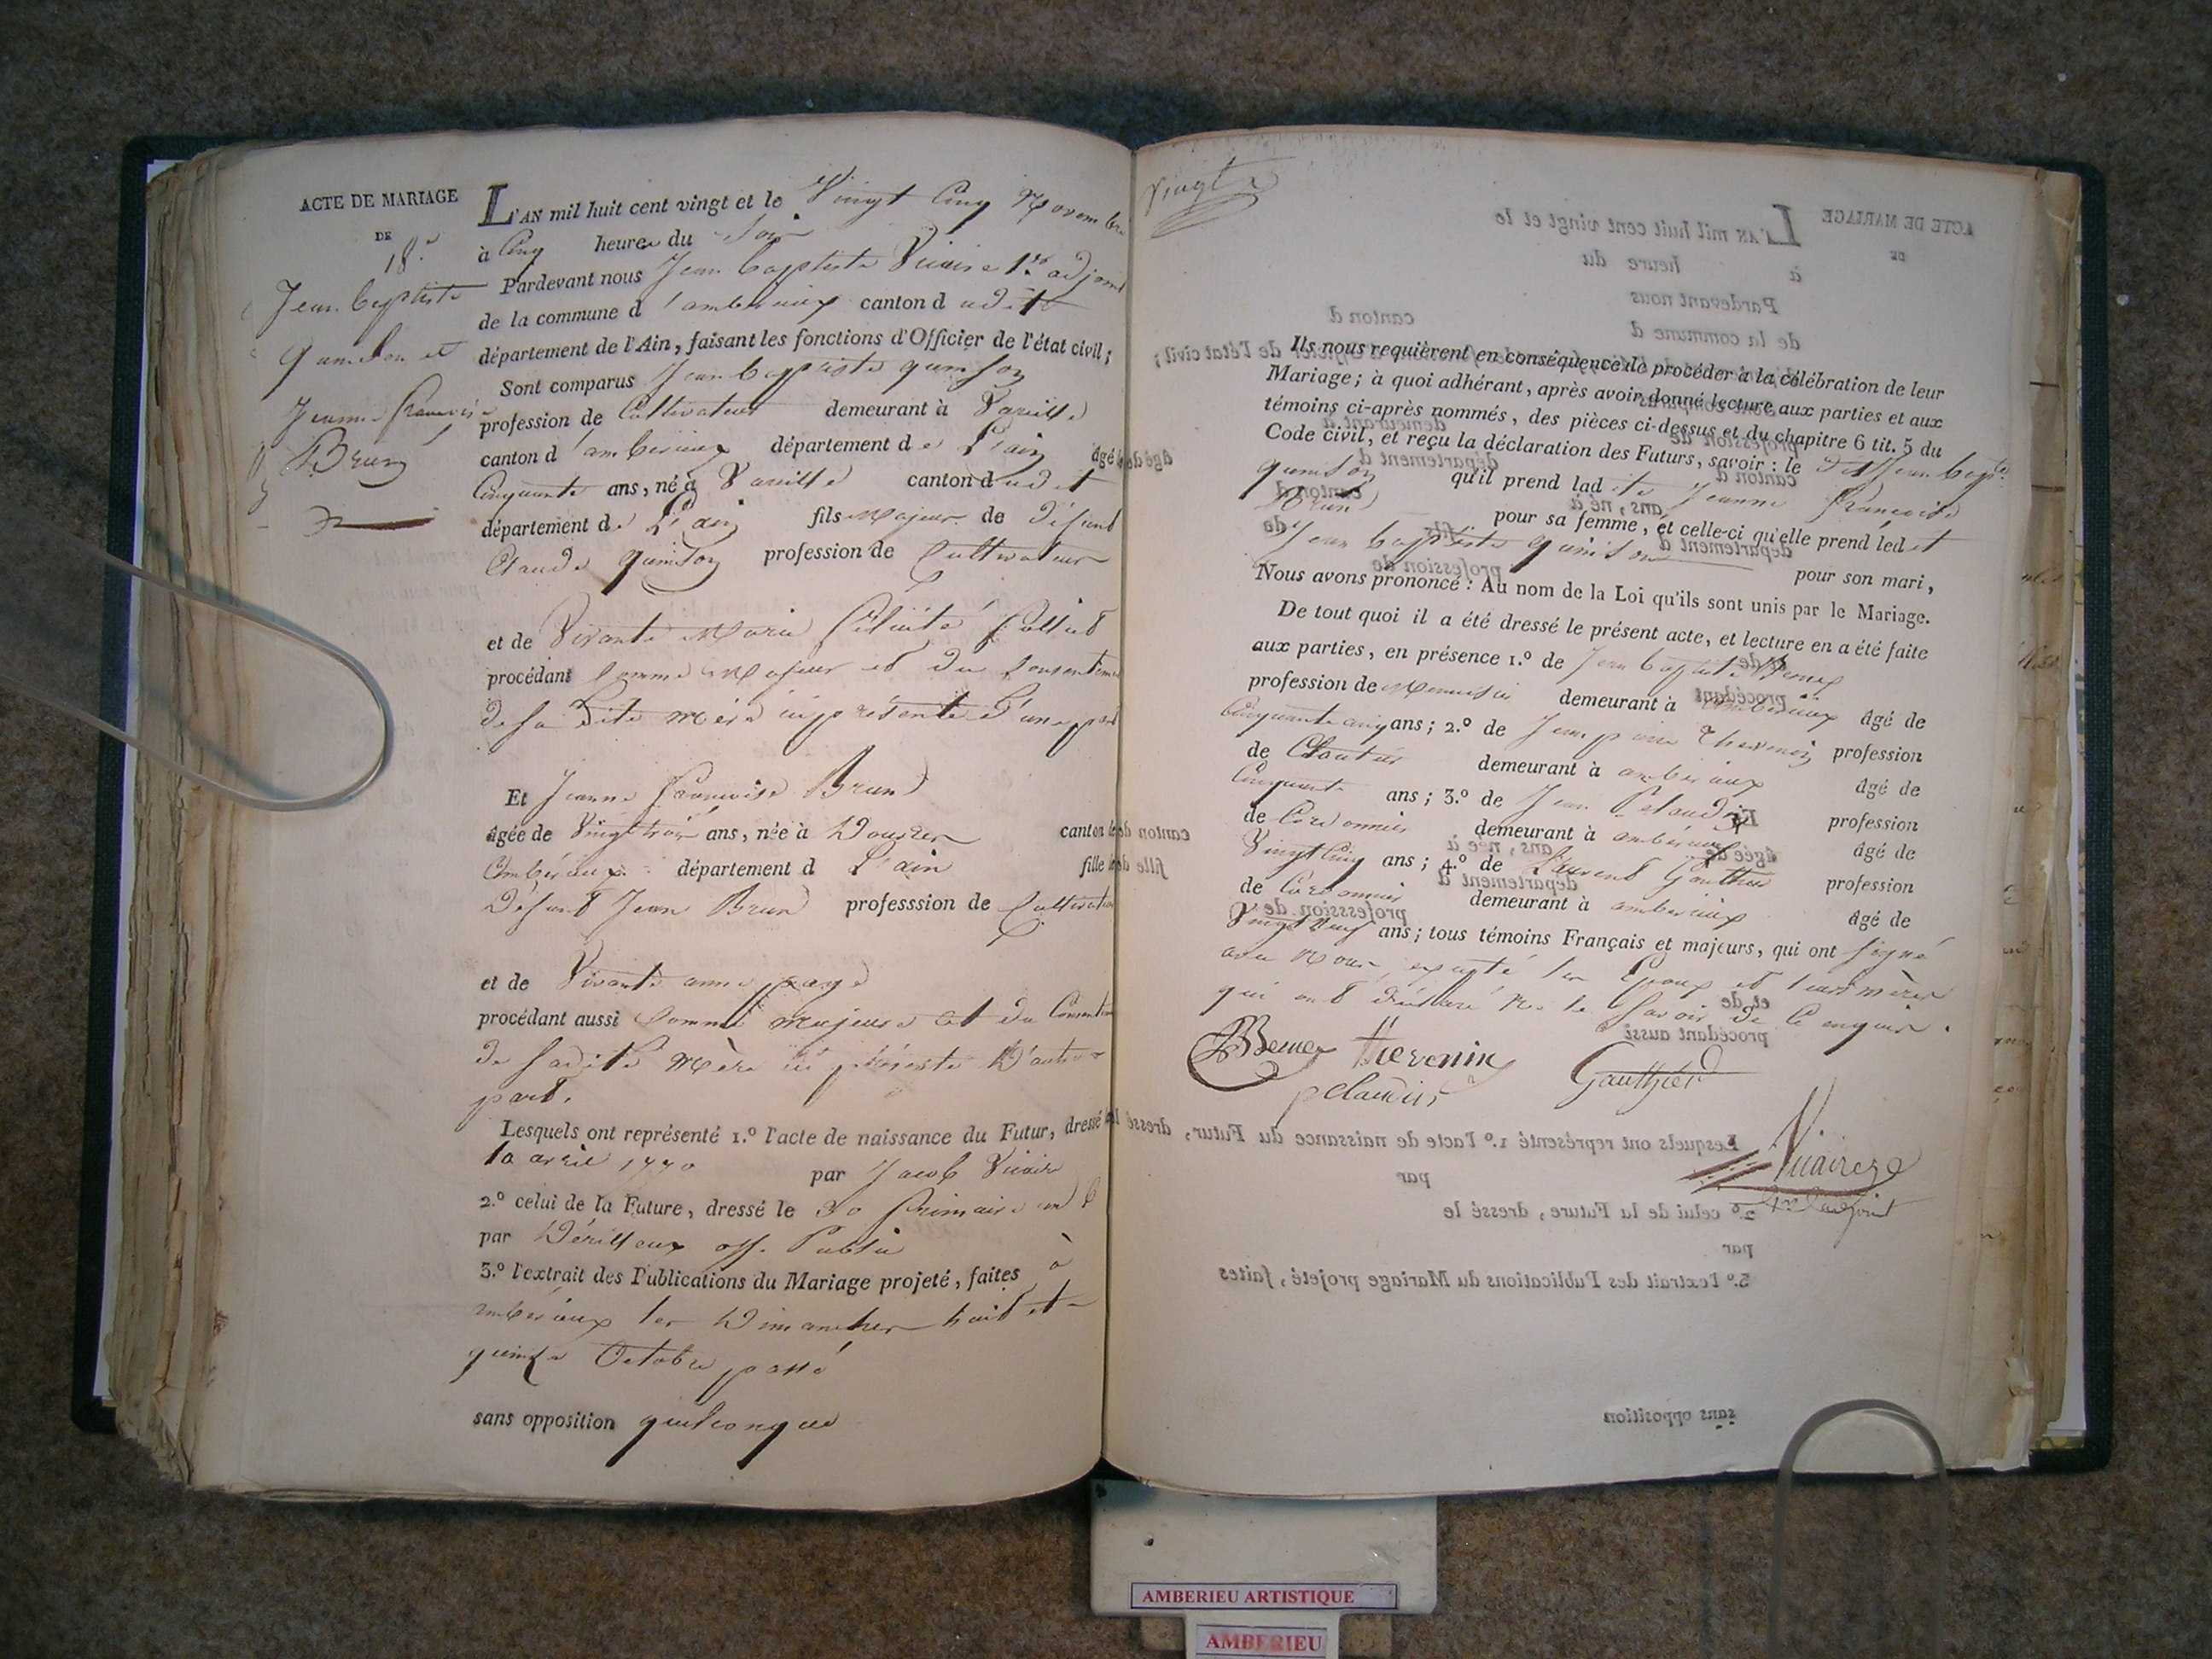 ACTE DE MARIAGE
DE
18.e
Jean Baptiste
quinson et
Jeanne françoise
Brun
L'AN mil huit cent vingt et le Vingt Cinq Novembre
à Cinq heures du Soir
Pardevant nous Jean Baptiste Vicaire 1.er adjoint
de la commune d'amberieux canton dudit
département de l'Ain, faisant les fonctions d'Officier de l'état civil;
Sont comparus Jean baptiste quinson
profession de Cultivateur demeurant à Vareille
canton d'amberieux département de L'ain âgé de
Cinquante ans, né à Vareille canton dudit
département de L'ain fils Majeur de Défunt
Claude quinson profession de Cultivateur
et de Vivante Marie
procédant comme Majeur et du Consentement
de sa dite mère ici présente d'une part
Et Jeanne françoise Brun
âgée de Vingt trois ans, née à Douvres canton d
Ambérieux département d L'ain fille de
Défunt Jean Brun professsion de Cultivateur
et de Vivante anne page
procédant aussi Comme majeure et du Consentement
de sadite Mère ici présente D'autre
part.
Lesquels ont représenté 1.º l'acte de naissance du Futur, dressé le
10 avril 1770 par Jacob Vicaire
2.º celui de la Future, dressé le 30 frimaire an 6
par off. Public
3.º l'extrait des Publications du Mariage projeté, faites à
ambérieux les Dimanches huit et
quinze Octobre passé
sans opposition quelconque
Vingt
Ils nous requièrent en conséquence de procéder à la célébration de leur
Mariage; à quoi adhérant, après avoir donné lecture aux parties et aux
témoins ci-après nommés, des pièces ci-dessus et du chapitre 6 tit. 5 du
Code civil, et reçu la déclaration des Futurs, savoir : le dit Jean Bapt.te
quinson qu'il prend ladite Jeanne françoise
Brun pour sa femme, et celle-ci qu'elle prend ledit
Jean baptiste quinson pour son mari,
Nous avons prononcé : Au nom de la Loi qu'ils sont unis par le Mariage.
De tout quoi il a été dressé le présent acte, et lecture en a été faite
aux parties, en présence 1.º de Jean baptiste
profession de Menuisier demeurant à ambérieux âgé de
Cinquante cinq ans; 2.º de Jean pierre Thevenin profession
de demeurant à ambérieux âgé de
Cinquante ans; 3.º de Jean Pelaudin profession
de Cordonnier demeurant à ambérieux âgé de
Vingt Cinq ans; 4.º de Laurent Gauthier profession
de Cordonnier demeurant à ambérieux âgé de
Vingt neuf ans; tous témoins Français et majeurs, qui ont signé
avec Nous, excepté les Epoux et leurs mères
qui ont déclaré ne le Savoir de Ce enquis.
thevenin
Gauthier
pelaudin
Vicaire
1er adjoint
AMBERIEU ARTISTIQUE
AMBERIEU